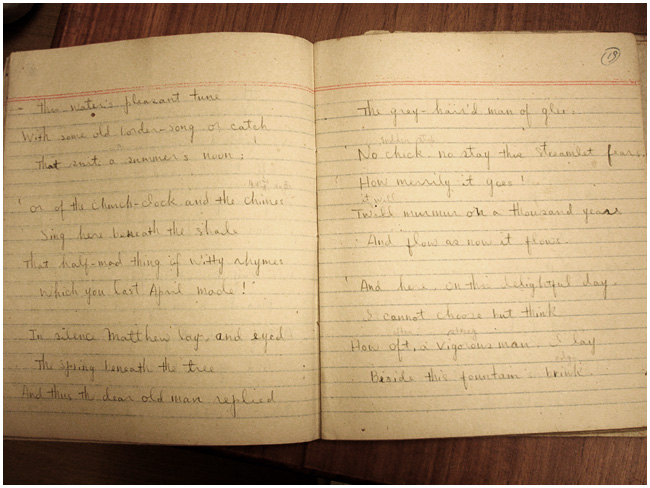 - This water's pleasant tune
With some old border-song or catch
That suits a summer's noon;
' or of the Church-clock and the chimes
Sing here beneath the shade
That half-mad thing of witty rhymes
Which you last April made!'
In silence Matthew lay, and eyed
The spring beneath the tree
And thus the dear old man replied
The grey-hair'd man of glee.
'No check, no stay this Streamlet fears.
How merrily it goes!
it will
Twill murmur on a thousand years
And flow as now it flows.
'And here, on this delightful day,
I cannot choose but think
often strong
How oft, a vigorous man, I lay
edge
Beside this fountain's brink.